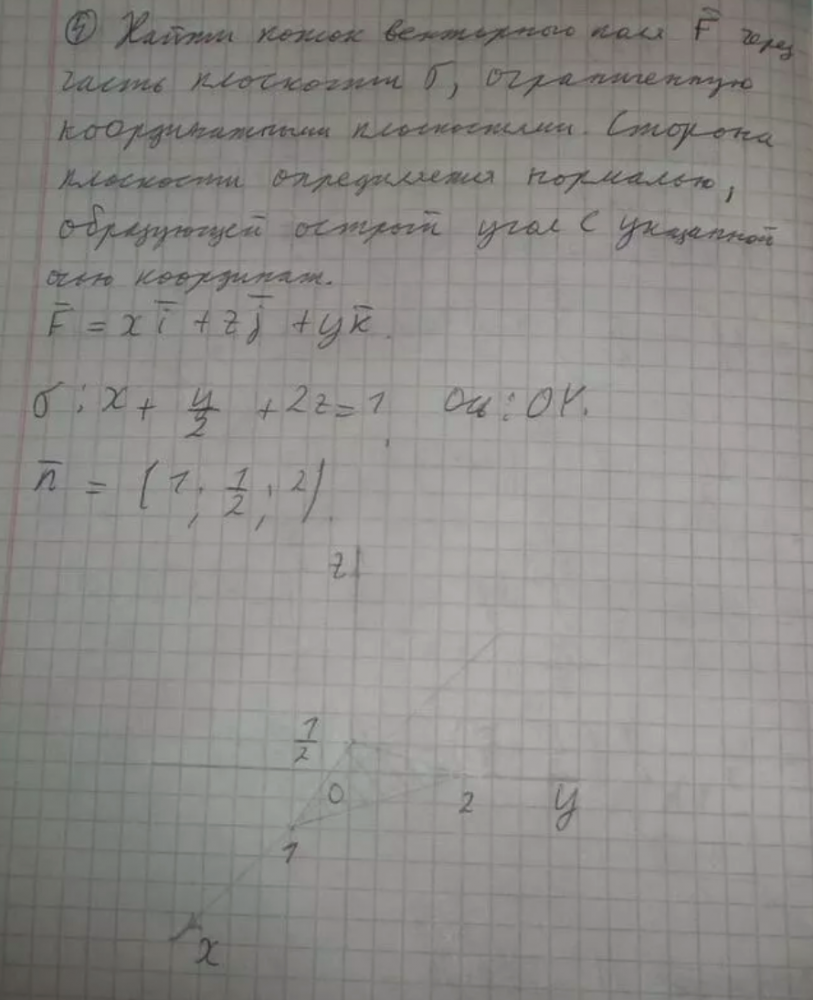 ⑤ Найти поток векторного поля F̅ через
часть плоскости σ, ограниченную
координатными плоскостями. Сторона
плоскости определяется нормалью,
образующей острый угол с указанной
осью координат.
F̅ = x i̅ + z j̅ + y k̅.
σ: x + y/2 + 2z = 1, Ось: OY.
n̅ = (1; 1/2; 2).
z
1/2
0 2 y
1
x